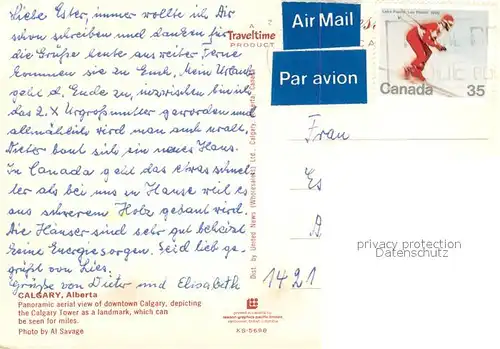 Liebe Ester, immer wollte ich Dir
schon schreiben und danken für
die Grüße heute aus weiter Ferne
kommen sie zu Euch. Mein Urlaub
geht d. Ende zu, inzwischen bin ich
das 2. X Urgroßmutter geworden und
allmählich wird man auch uralt.
Dieter baut sich ein neues Haus.
In Canada geht das etwas schnel
ler als bei uns zu Hause weil es
aus schwerem Holz gebaut wird.
Die Häuser sind sehr gut beheizt
keine Energiesorgen. Seid lieb ge-
grüßt von Lies.
Grüße von Dieter und Elisabeth
CALGARY, Alberta
Panoramic aerial view of downtown Calgary, depicting
the Calgary Tower as a landmark, which can
be seen for miles.
Photo by Al Savage
A
Traveltime
PRODUCT
Dist. by United News (Wholesalers) Ltd., Calgary, Alberta, Canada
KS-5698
Air Mail
Par avion
Canada 35
Frau
Es
A
1421
privacy protection
Datenschutz